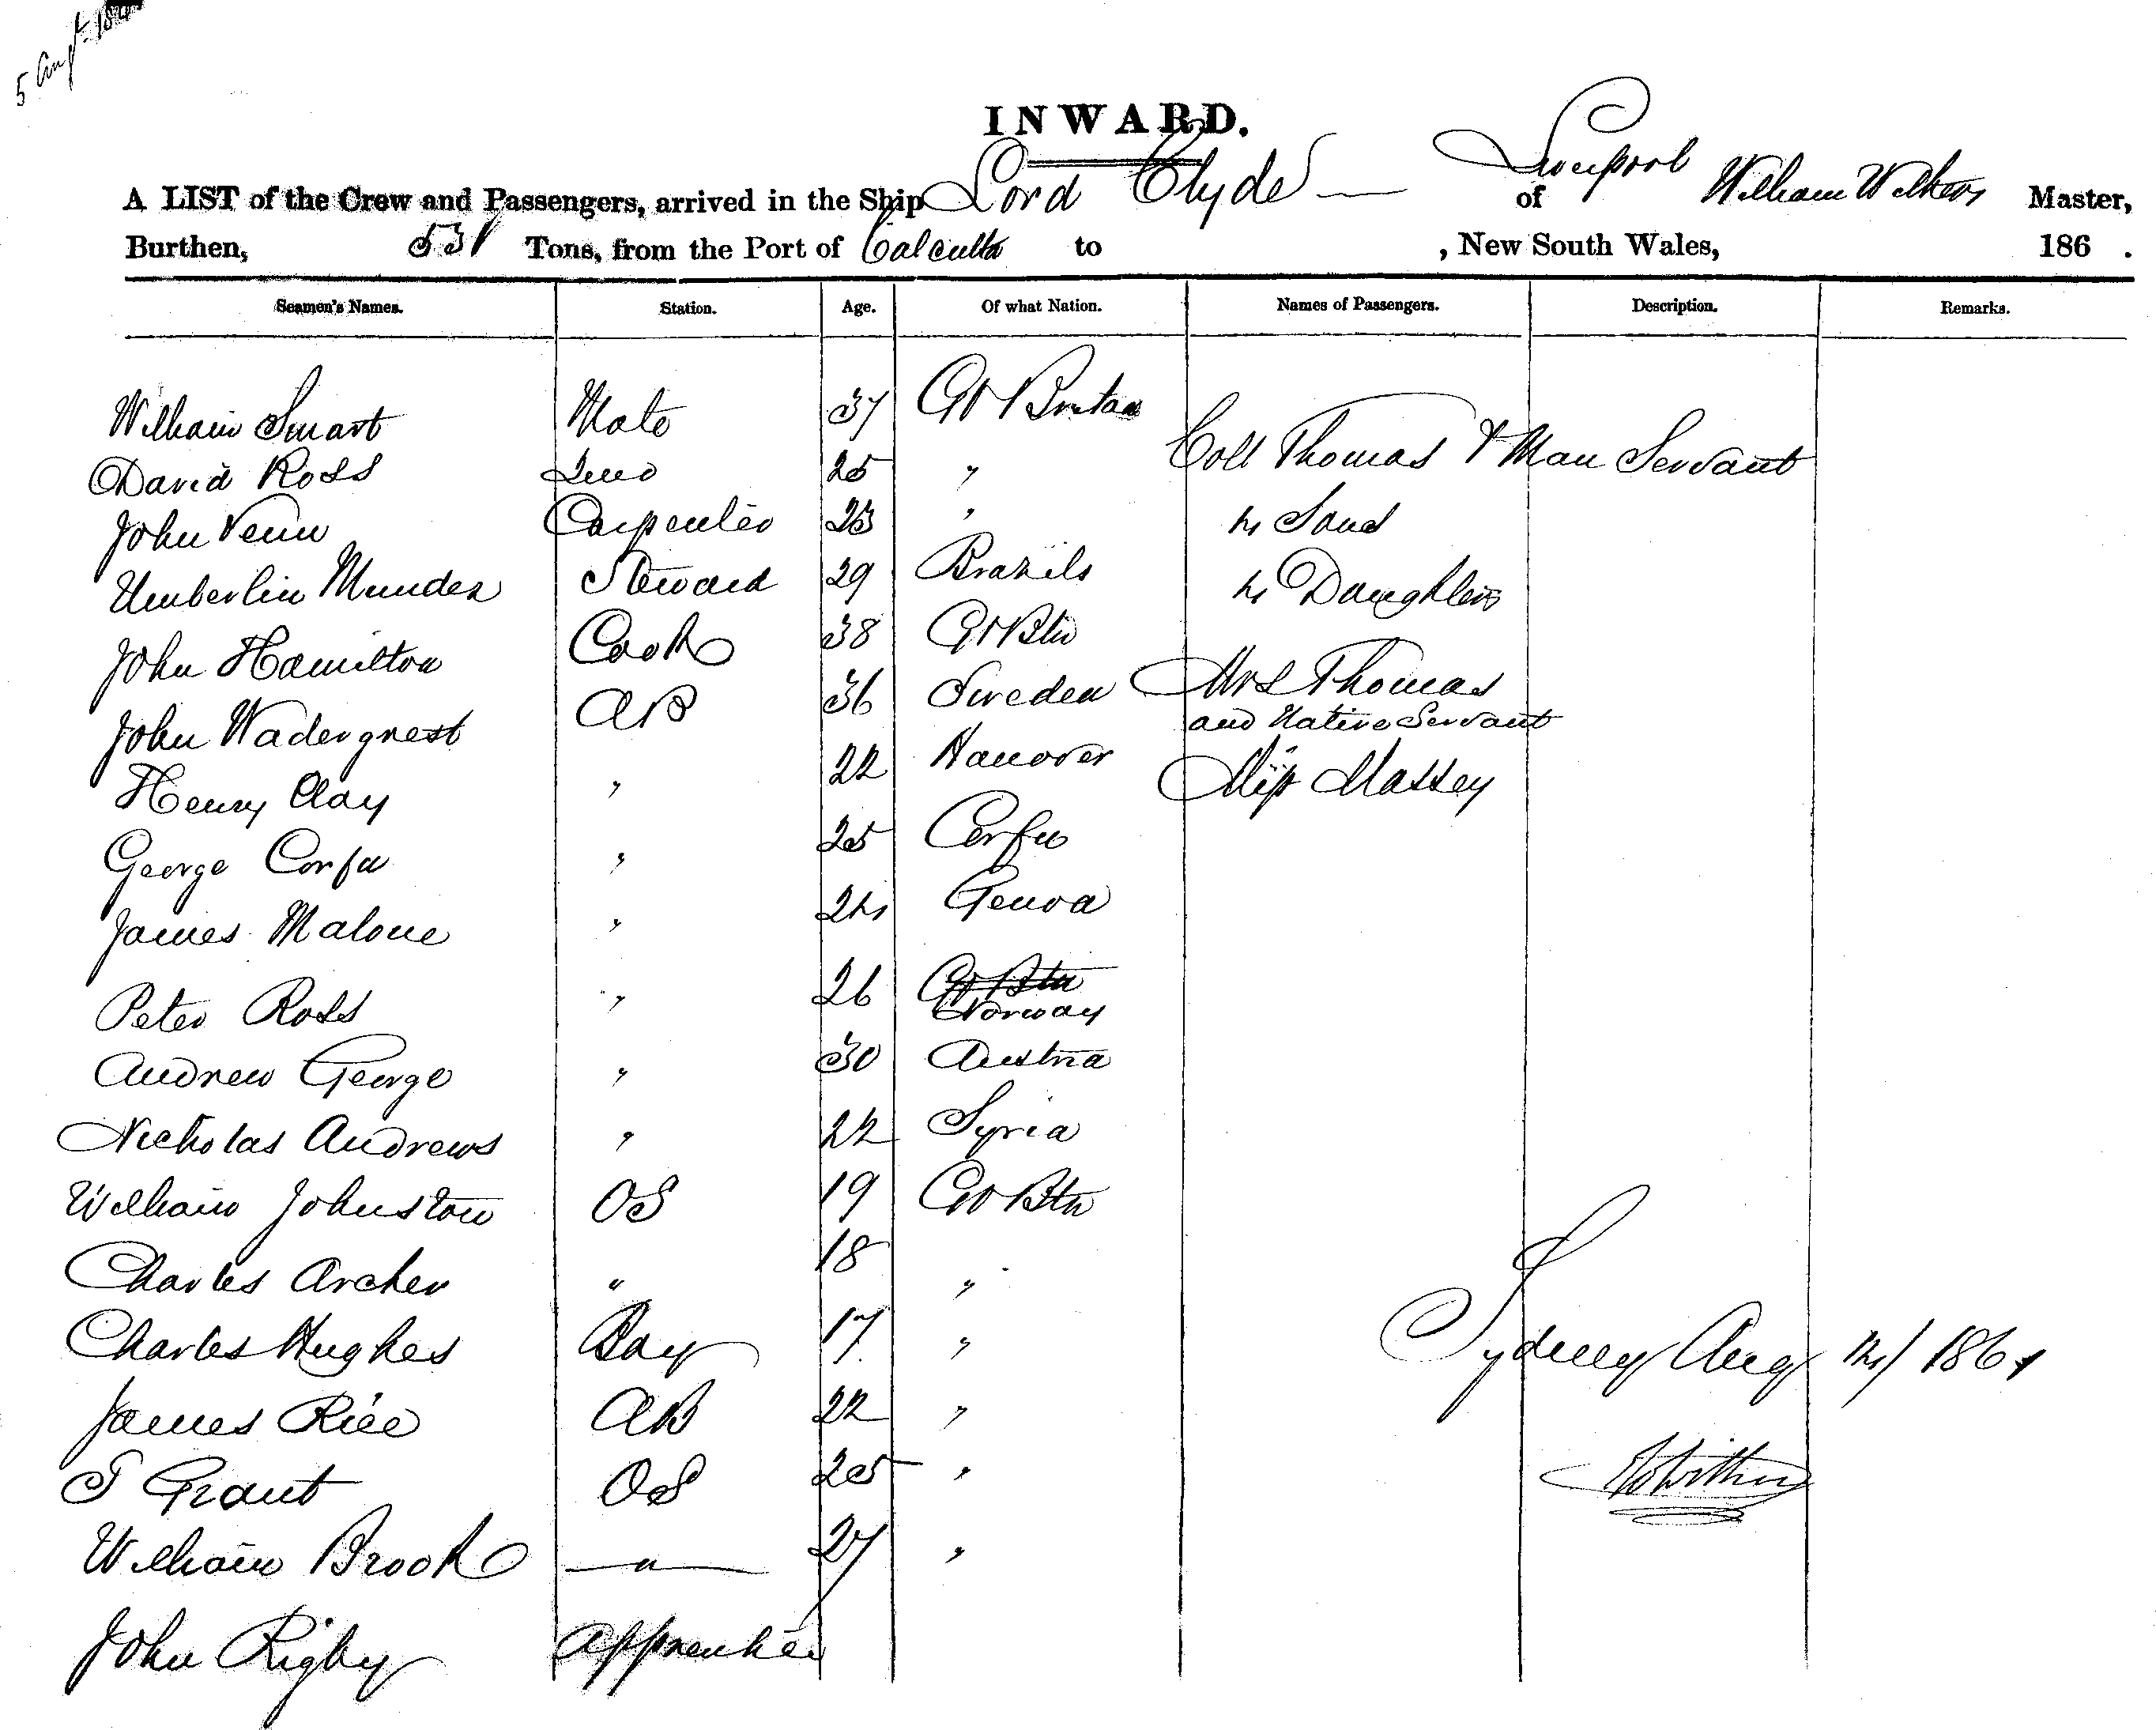 5 Augt
INWARD.
A LIST of the Crew and Passengers, arrived in the Ship Lord Clyde of Liverpool William Withers Master,
Burthen, 531 Tons, from the Port of Calcutta to , New South Wales, 186 .
Seamen's Names. Station. Age. Of what Nation. Names of Passengers. Description. Remarks.
William Smart Mate 37 Gt Britan Coll Thomas & Man Servant
David Ross 25 "
John Venn Carpenter 23 " 4 Sons
Umberlin Mundez Steward 29 Brazils 4 Daughters
John Hamilton Cook 38 Gt Btn
John Wadergnest AB 36 Sweden Mrs Thomas
and Native Servant
Henry Clay " 22 Hanover Miss Massey
George Corfu " 25 Corfu
James Malone " 24 Genoa
Peter Ross " 26 Gt Btn
Norway
Andrew George " 30 Austria
Nicholas Andrews " 22 Syria
William Johnston OS 19 Gt Btn
Charles Archer " 18 "
Charles Hughes Boy 17 " Sydney Aug 1861
James Rice AB 22 "
T Grant OS 25 "
William Brook " 27 "
John Rigby Apprentice